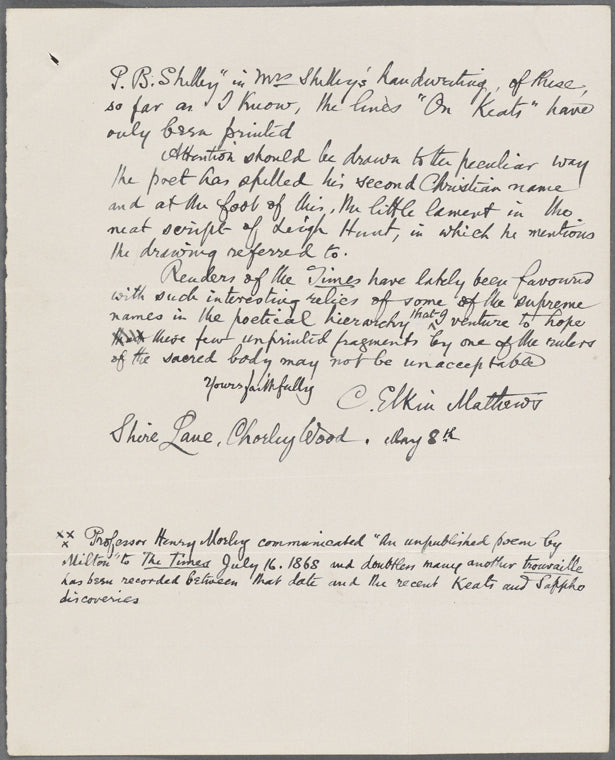 P. B. Shelley" in Mrs Shelley's handwriting, of these,
so far as I know, the lines "On Keats" have
only been printed
Attention should be drawn to the peculiar way
the poet has spelled his second Christian name
and at the foot of this, the little lament in the
neat script of Leigh Hunt, in which he mentions
the drawing referred to.
Readers of the Times have lately been favoured
with such interesting relics of some of the supreme
names in the poetical hierarchy that I venture to hope
these few unprinted fragments by one of the rulers
of the sacred body may not be unacceptable
Yours faithfully
C. Elkin Mathews
Shire Lane, Chorley Wood. May 8th
xx
x Professor Henry Morley communicated "An unpublished poem by
Milton" to The Times July 16. 1868 and doubtless many another trouvaille
has been recorded between that date and the recent Keats and Sappho
discoveries